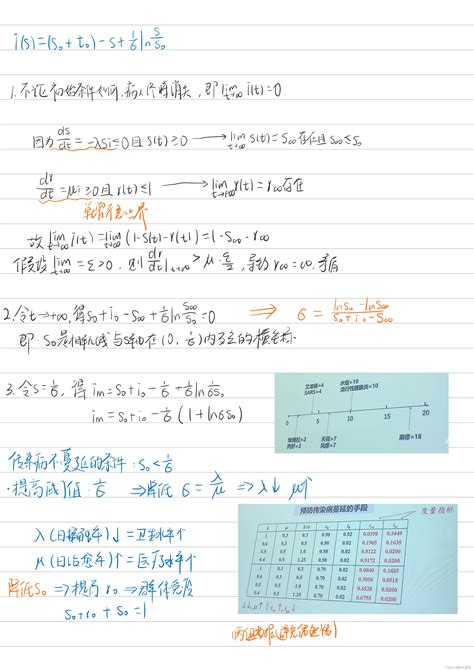 i(s)=(s₀+i₀)-s+1/σ ln s/s₀
1.不论初始条件如何,病人终将消失,即lim t→∞ i(t)=0
因为 ds/dt=-λsi≤0且s(t)≥0 → lim t→∞ s(t)=s∞存在且s∞≤s₀
dr/dt=μi≥0且r(t)≤1 → lim t→∞ r(t)=r∞存在
单增有上界
故lim t→∞ i(t)=lim t→∞ (1-s(t)-r(t))=1-s∞-r∞
假设lim t→∞ =ε>0,则 dr/dt|t→∞ >μ·ε/2,导致r∞=∞,矛盾
2.令t→+∞,得s₀+i₀-s∞+1/σ ln s∞/s₀=0 ⇒ σ=(ln s₀-ln s∞)/(s₀+i₀-s∞)
即:s∞是相轨线与s轴在(0,1/σ)内交点的横坐标
3.令s=1/σ,得im=s₀+i₀-1/σ+1/σ ln 1/σs₀
im=s₀+i₀-1/σ(1+lnσs₀)
艾滋病=4 水痘=10
SARS=4 流行性腮腺炎=10
0 5 10 15 20
埃博拉=2 天花=7 麻疹=18
丙肝=2 风疹=7
传染病不蔓延的条件:s₀<1/σ
·提高阈值 1/σ ⇒降低 σ=λ/μ ⇒λ↓ μ↑
预防传染病蔓延的手段
度量指标
λ(日接触率)↓=卫生水平↑
μ(日治愈率)↑=医疗水平↑
λ μ 1/σ s₀ i₀ s∞ im
1 0.3 0.3 0.98 0.02 0.0398 0.3449
0.6 0.3 0.5 0.98 0.02 0.1965 0.1635
0.5 0.5 1.0 0.98 0.02 0.8122 0.0200
0.4 0.5 1.25 0.98 0.02 0.9172 0.0200
1 0.3 0.3 0.70 0.02 0.0840 0.1685
0.6 0.3 0.5 0.70 0.02 0.3056 0.0518
0.5 0.5 1.0 0.70 0.02 0.6528 0.0200
0.4 0.5 1.25 0.70 0.02 0.6755 0.0200
降低s₀ ⇒提高r₀ ⇒群体免疫
s₀+r₀+s₀=1